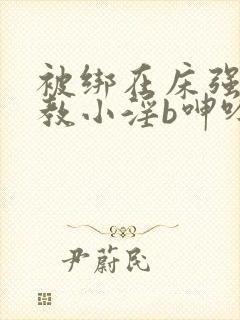 被绑在床强
教小淫b呻
尹蔚民